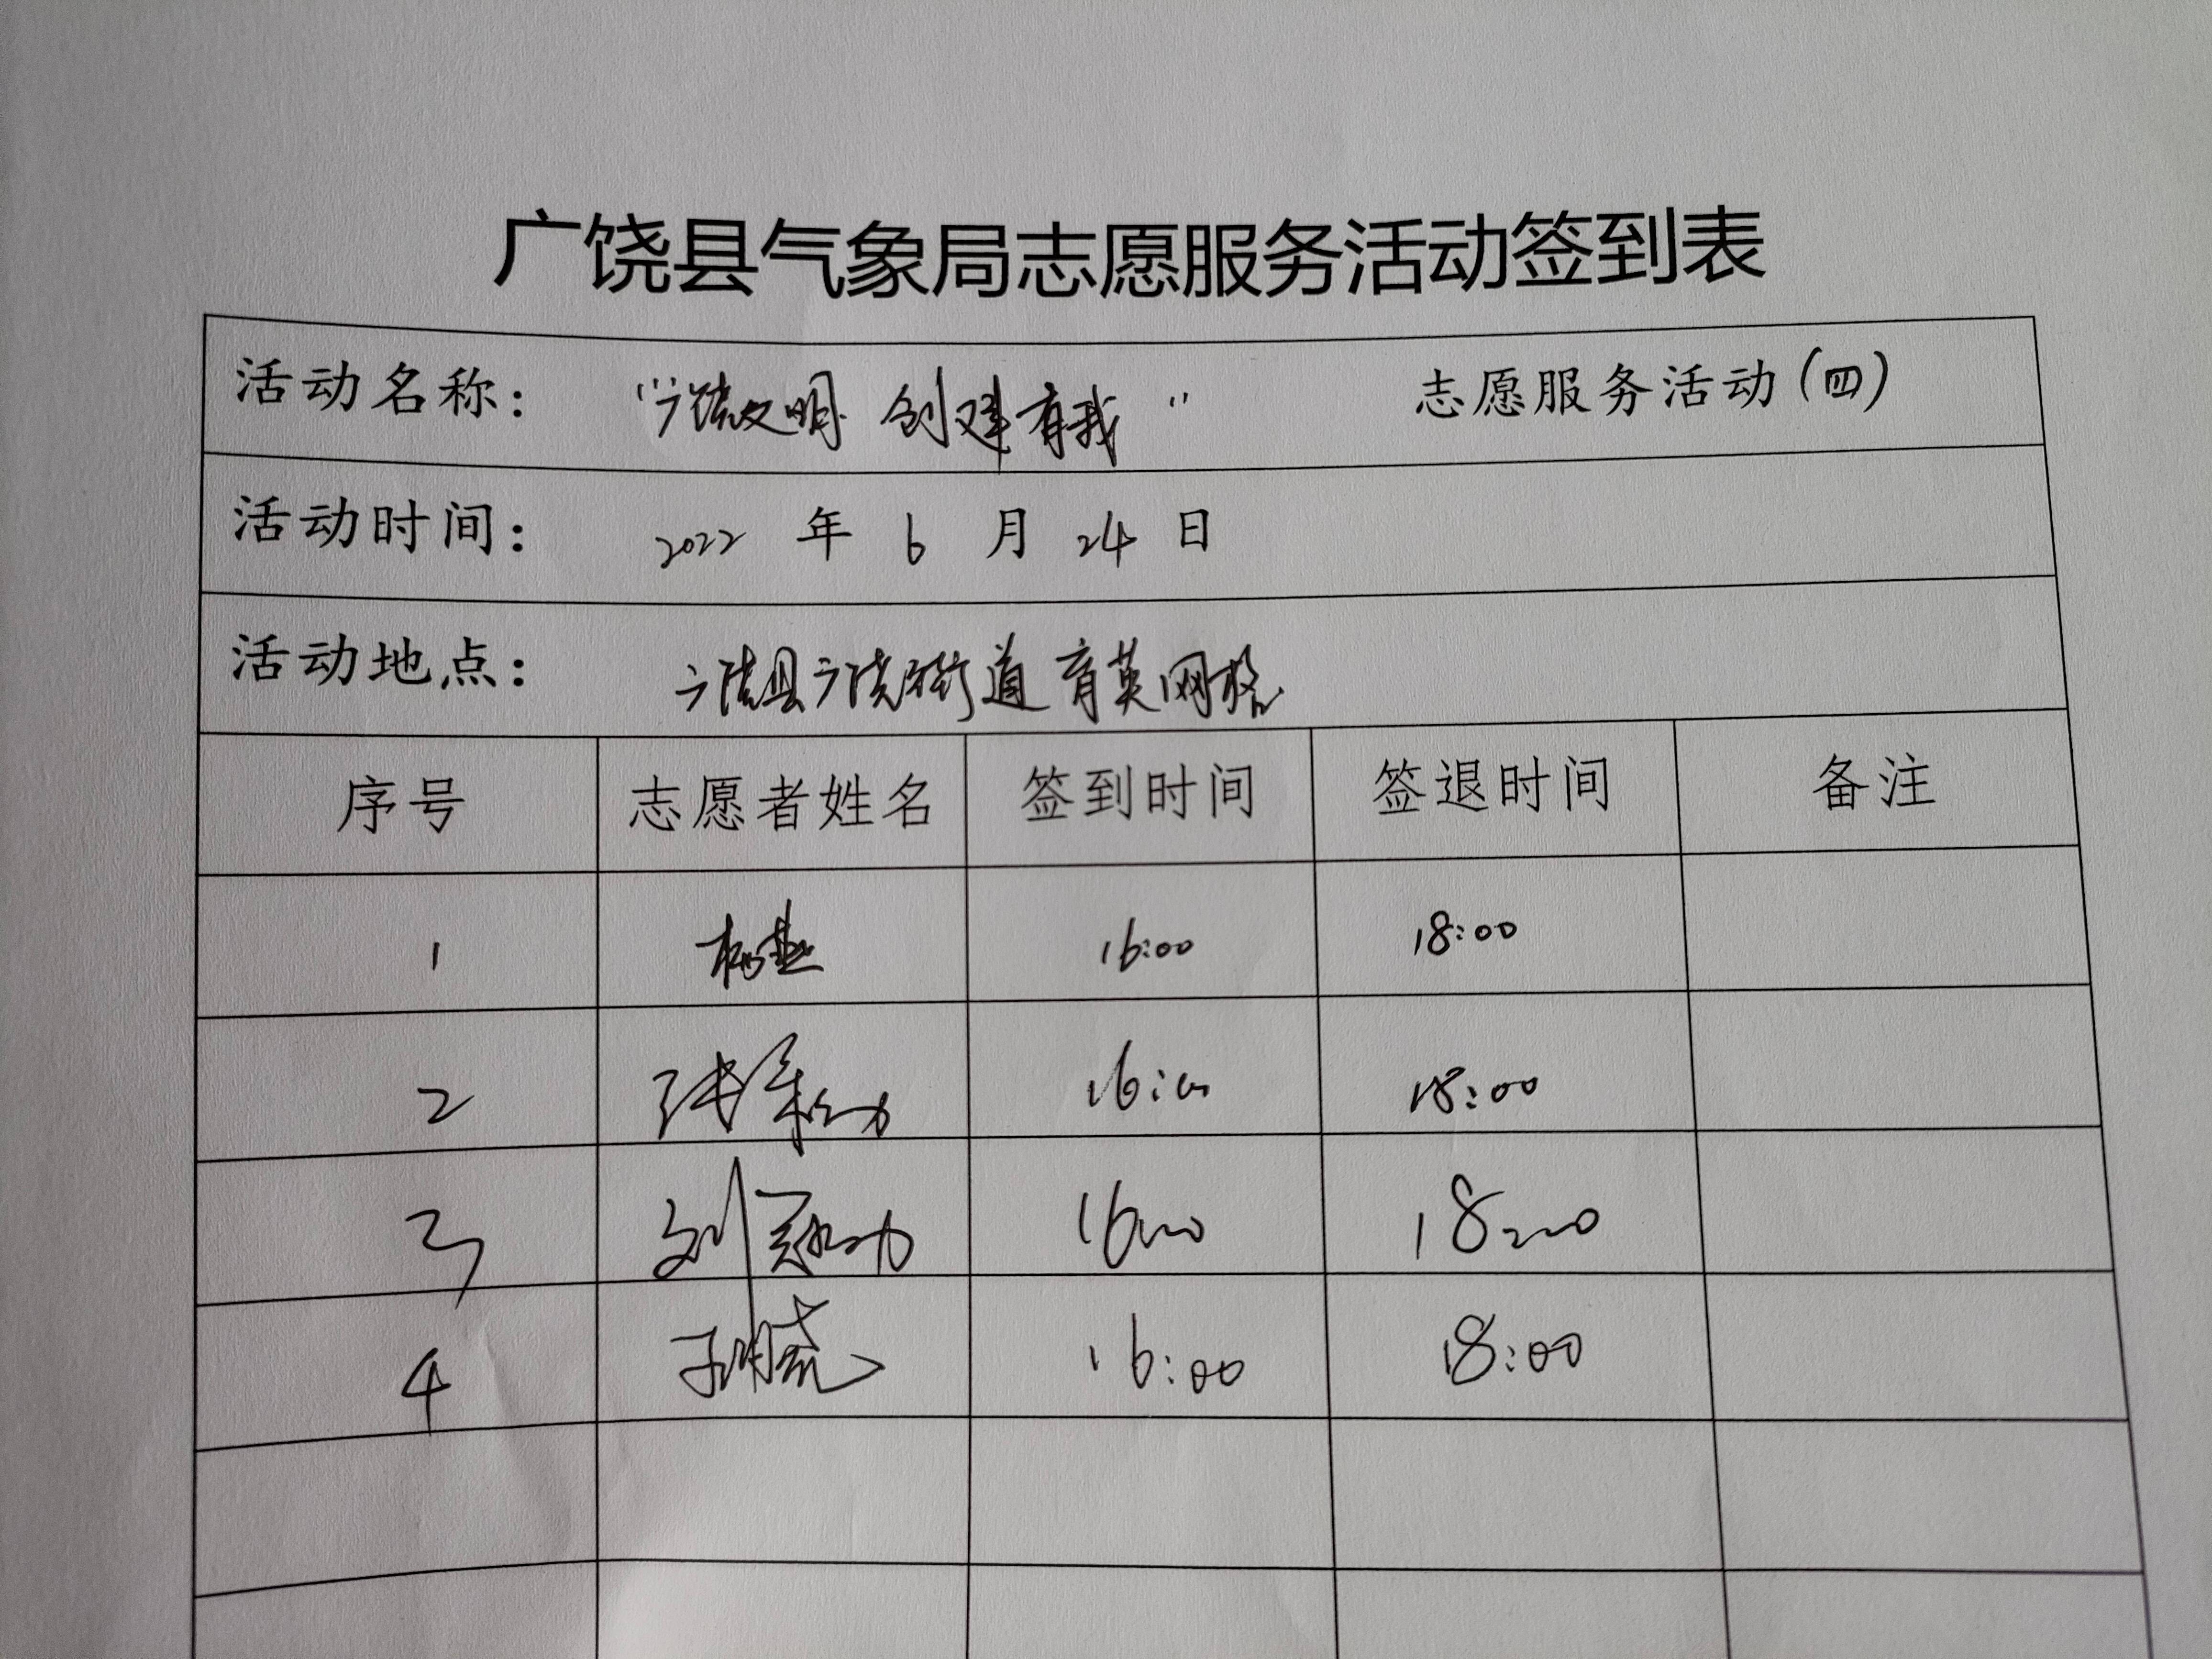 广饶县气象局志愿服务活动签到表
活动名称： “广饶文明 创建有我” 志愿服务活动(四)
活动时间： 2022 年 6 月 24 日
活动地点： 广饶县广饶街道育英网格
序号 志愿者姓名 签到时间 签退时间 备注
1 16:00 18:00
2 张 16:00 18:00
3 刘 16:00 18:00
4 孙晓 16:00 18:00